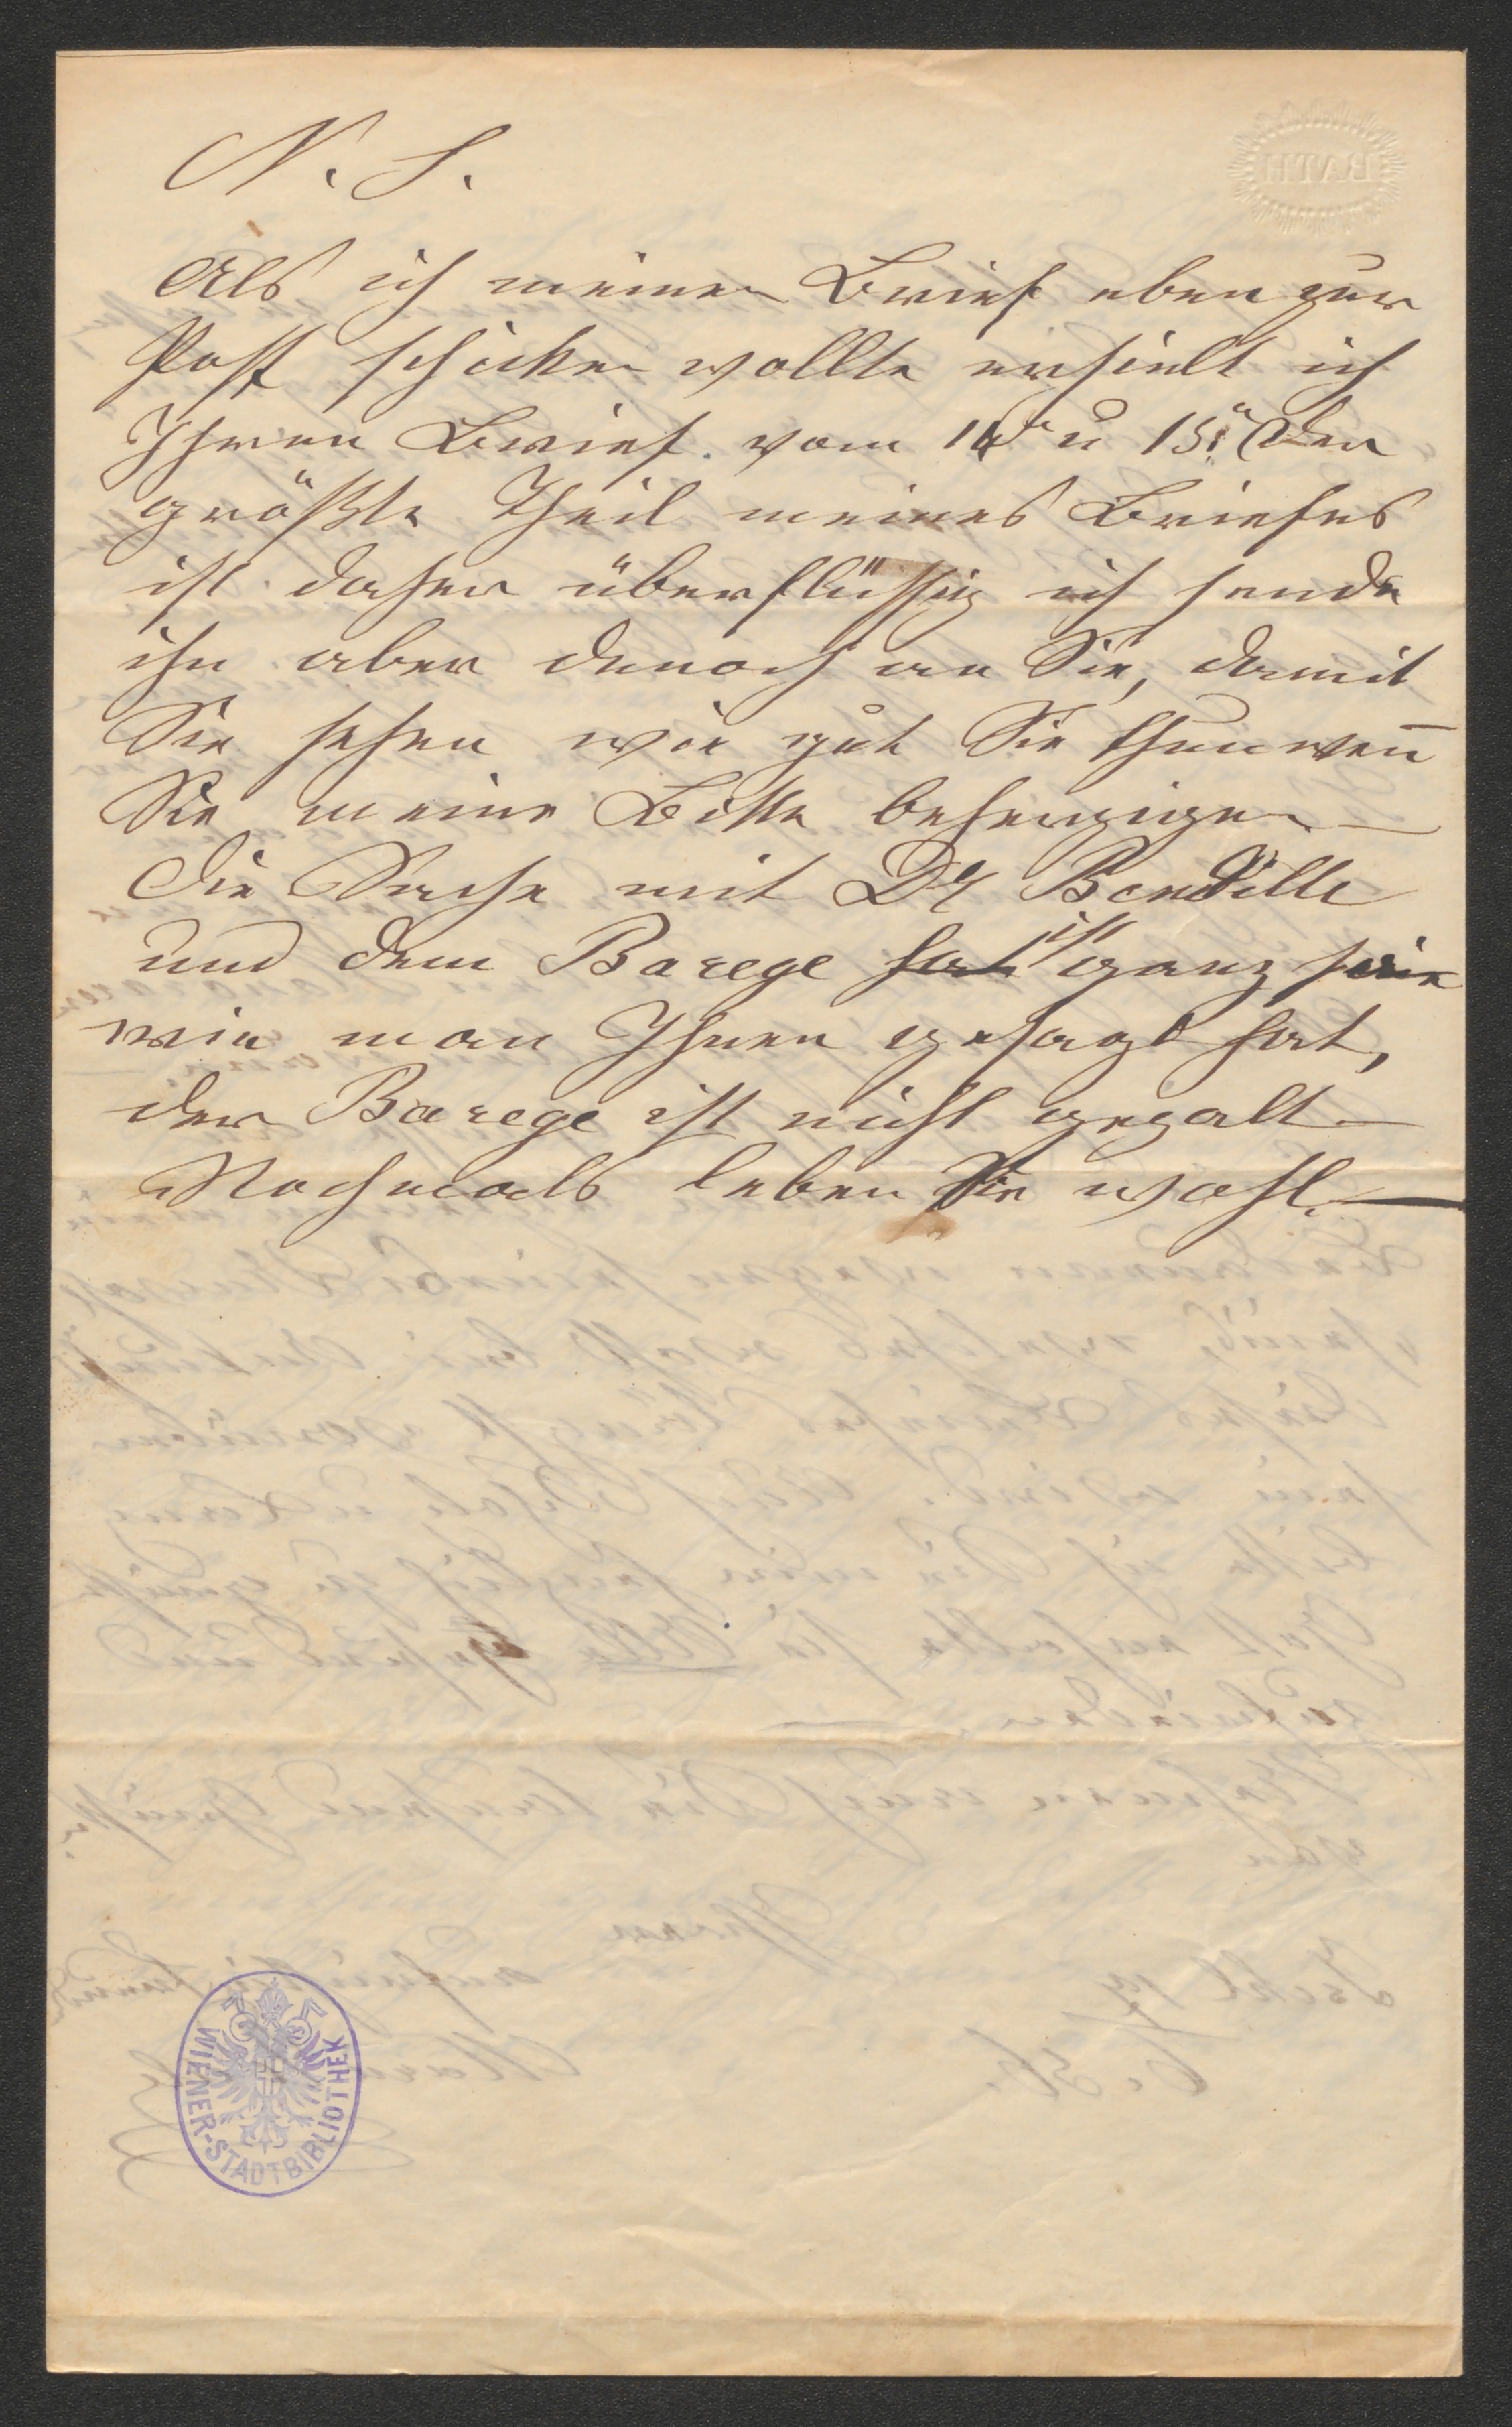 N. S.
BATH
Als ich meinen Brief eben zur
Post schicken wollte erhielt ich
Ihren Brief vom 14n u 15n Der
größte Theil meines Briefes
ist daher überflüssig ich sende
ihn aber denoch an Sie, damit
Sie sehen wie gut Sie thun weñ
Sie meine Bitte beherzigen —
Die Sache mit Dr
und dem Barege hat ist ganz
wie man Ihnen gesagt hat,
der Barege ist nicht gezalt —
Nochmals leben Sie wohl. —
WIENER-STADTBIBLIOTHEK